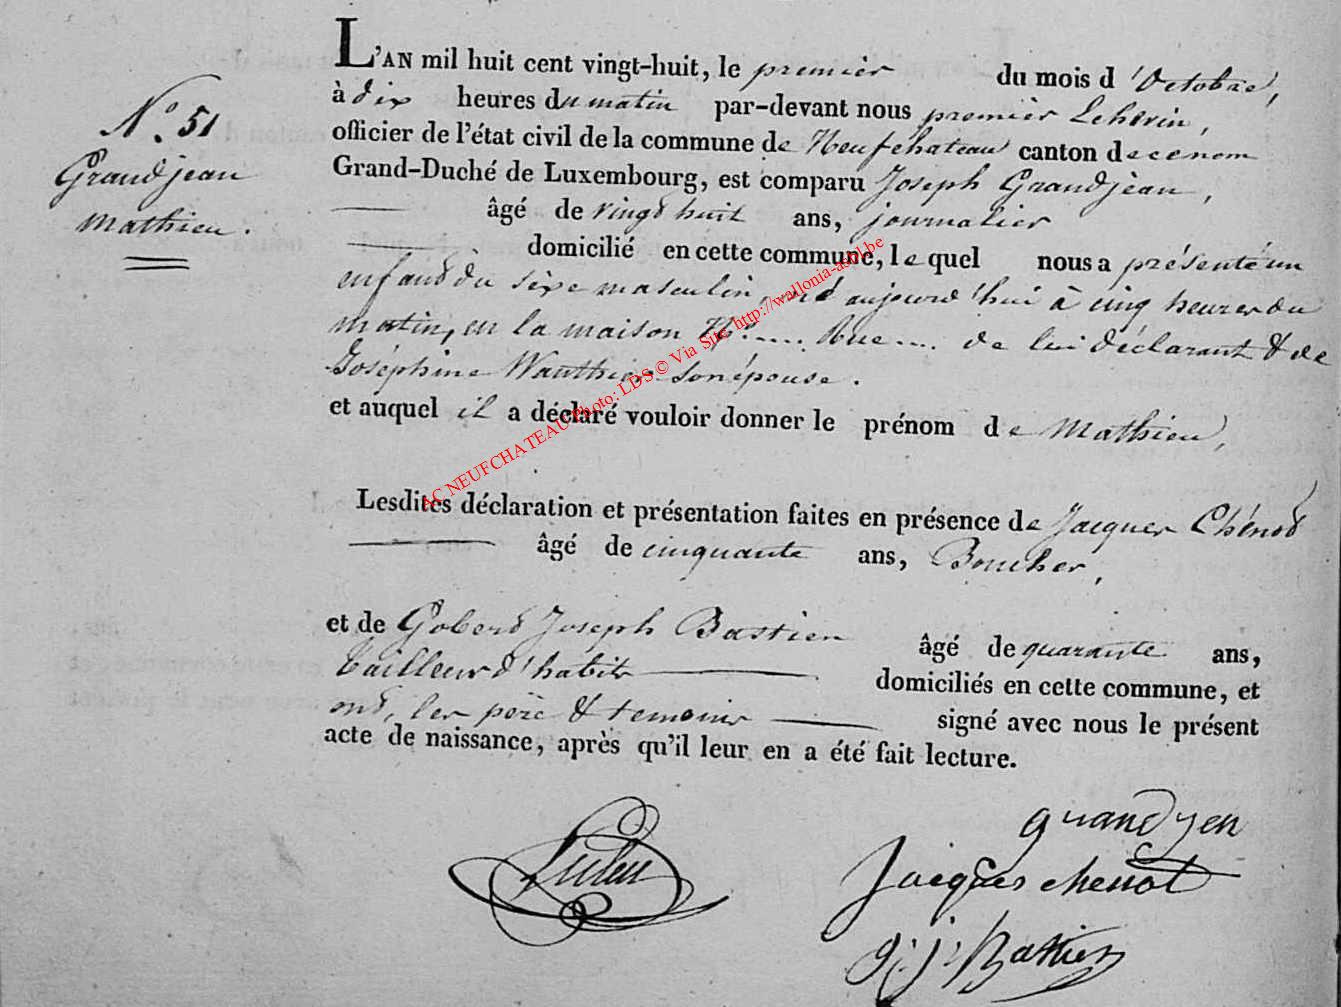 N.o 51
Grandjean
Mathieu.
L'AN mil huit cent vingt-huit, le premier du mois d'Octobre,
à dix heures du matin par-devant nous premier Echevin,
officier de l'état civil de la commune de Neufchateau canton de ce nom
Grand-Duché de Luxembourg, est comparu Joseph Grandjèan,
âgé de vingt huit ans, journalier
domicilié en cette commune, le quel nous a présenté un
enfant du sixe masculin, né aujourd'hui à cinq heures du
matin, en la maison No.... Rue.... de lui déclarant & de
Joséphine Wauthier son épouse.
et auquel il a déclaré vouloir donner le prénom de Mathieu,
Lesdites déclaration et présentation faites en présence de Jacques Chénot
âgé de cinquante ans, Boucher,
et de Gobert Joseph Bastien âgé de quarante ans,
tailleur d'habits domiciliés en cette commune, et
ont, les père & temoins signé avec nous le présent
acte de naissance, après qu'il leur en a été fait lecture.
grandjen
Jacques chenot
g: j: Bastien
AC NEUFCHATEAU Photo: LDS © Via Site http://wallonia-asbl.be